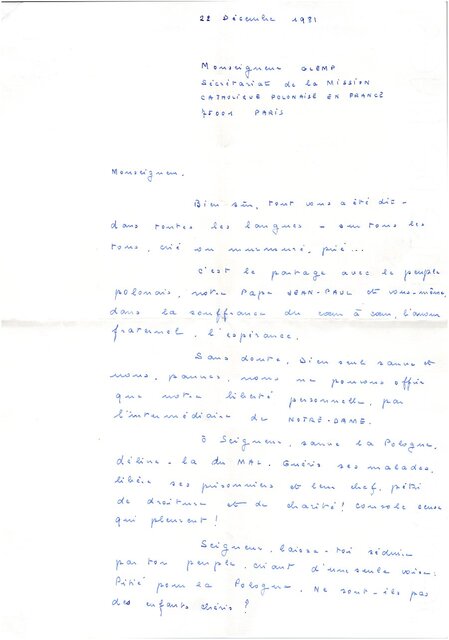 22 Décembre 1981
Monseigneur GLEMP
Sécrétariat de la MISSION
CATHOLIQUE POLONAISE EN FRANCE
75001 PARIS
Monseigneur.
Bien sûr, tout vous a été dit -
dans toutes les langues - sur tous les
tons, crié ou murmuré, prié...
C'est le partage avec le peuple
polonais, notre Pape JEAN-PAUL et vous-même,
dans la souffrance du cœur à cœur, l'amour
fraternel, l'espérance.
Sans doute, Dieu seul sauve et
nous, pauvres, nous ne pouvons offrir
que notre liberté personnelle, par
l'intermédiaire de NOTRE-DAME.
Ô Seigneur, sauve la Pologne,
délivre-la du MAL. Guéris ses malades,
libère ses prisonniers et leur chef, pétri
de droiture et de charité! Console ceux
qui pleurent!
Seigneur, laisse-toi séduire
par ton peuple, criant d'une seule voix:
Pitié pour la Pologne. Ne sont-ils pas
des enfants chéris?